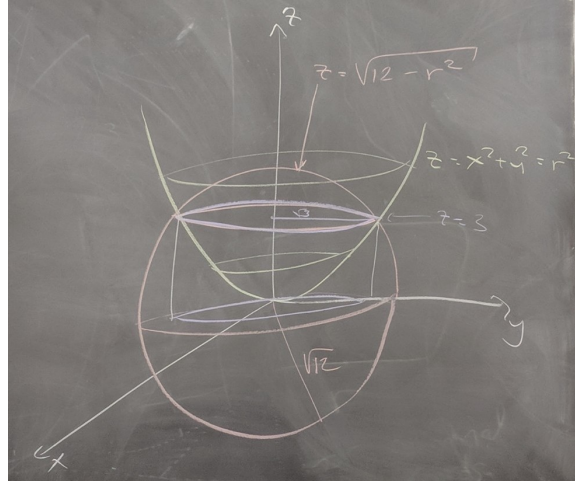 z
z = √12 - r²
z = x² + y² = r²
√3
z = 3
y
√12
x